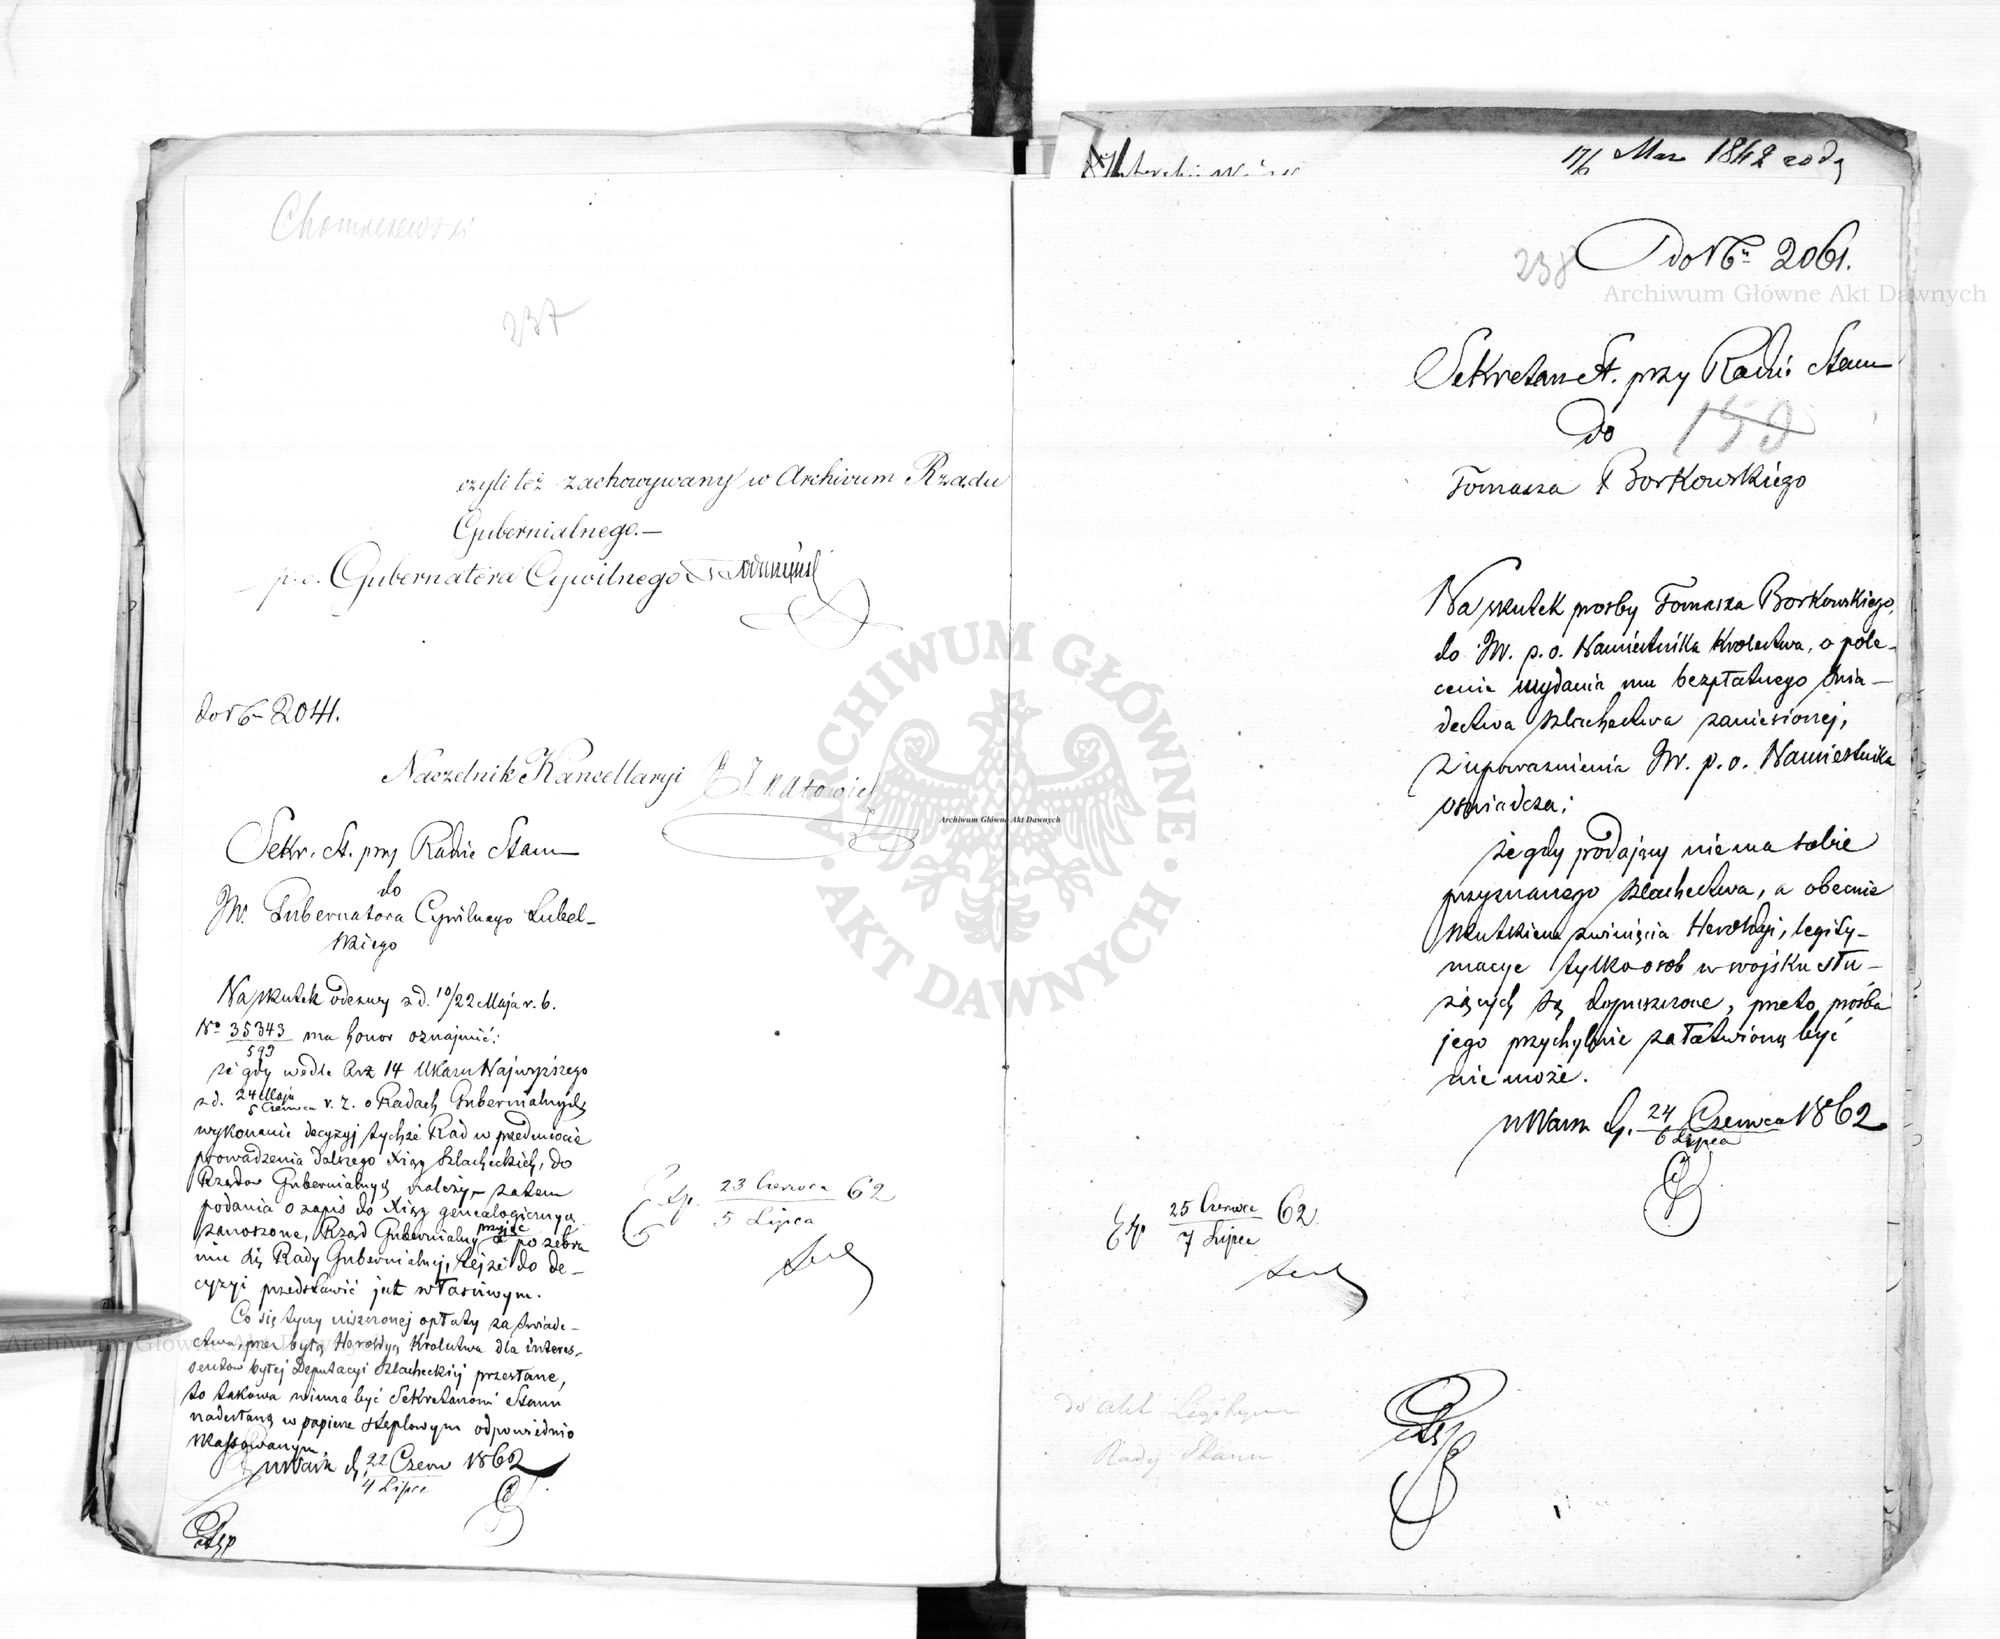 237
czyli też zachowywany w Archiwum Rządu
Gubernialnego.—
p. o. Gubernatora Cywilnego
do N 2041.
Naczelnik Kancellaryi
Sekr. St. przy Radzie Stanu
do
JW. Gubernatora Cywilnego Lubel-
skiego
Na skutek odezwy z d. 10/22 Maja r. b.
No 35343/593 ma honor oznajmić:
że gdy wedle Art 14 Ukazu Najwyższego
z d. 24 Maja/5 Czerwca r. z. o Radach Gubernialnych
wykonanie decyzyj tychże Rad w przedmiocie
prowadzenia dalszego Xiąg Szlacheckich, do
Rządów Gubernialnych należy, — zatem
podania o zapis do Xiąg genealogicznych
zanoszone, Rząd Gubernialny przyjąć po zebra
niu się Rady Gubernialnej, tejże do de-
cyzyi przedstawić jest właściwym.
Co się tyczy uiszczonej opłaty za świade-
ctwa, przez byłą Heroldyą Królestwa dla interes-
sentów byłej Deputacyi Szlacheckiej przesłane,
to takowa winna być Sekretarzowi Stanu
nadesłaną w papierze stęplowym odpowiednio
skassowanym.
w Warsz d. 22 Czerw/4 Lipca 1862
23 Czerwca/5 Lipca 62
17/6 Mar 1842
238
do No 2061.
Archiwum Główne Akt Dawnych
Sekretarz St. przy Radzie Stanu
do
Tomasza Borkowskiego
Na skutek prośby Tomasza Borkowskiego,
do JW. p. o. Namiestnika Królestwa, o pole-
cenie wydania mu bezpłatnego świa-
dectwa szlachectwa zaniesionej,
z upoważnienia JW. p. o. Namiestnika
oświadcza:
że gdy podający nie ma sobie
przyznanego szlachectwa, a obecnie
skutkiem zwinięcia Heroldyi, legity-
macye tylko osób w wojsku słu-
żących są dopuszczone, przeto prośba
jego przychylnie załatwioną być
nie może.
w Warsz d. 24 Czerwca/6 Lipca 1862
25 Czerwca/7 Lipca 62.
do akt Legitym
Rady Stanu
ARCHIWUM GŁÓWNE
AKT DAWNYCH
Archiwum Główne Akt Dawnych
Archiwum Główne Akt Dawnych